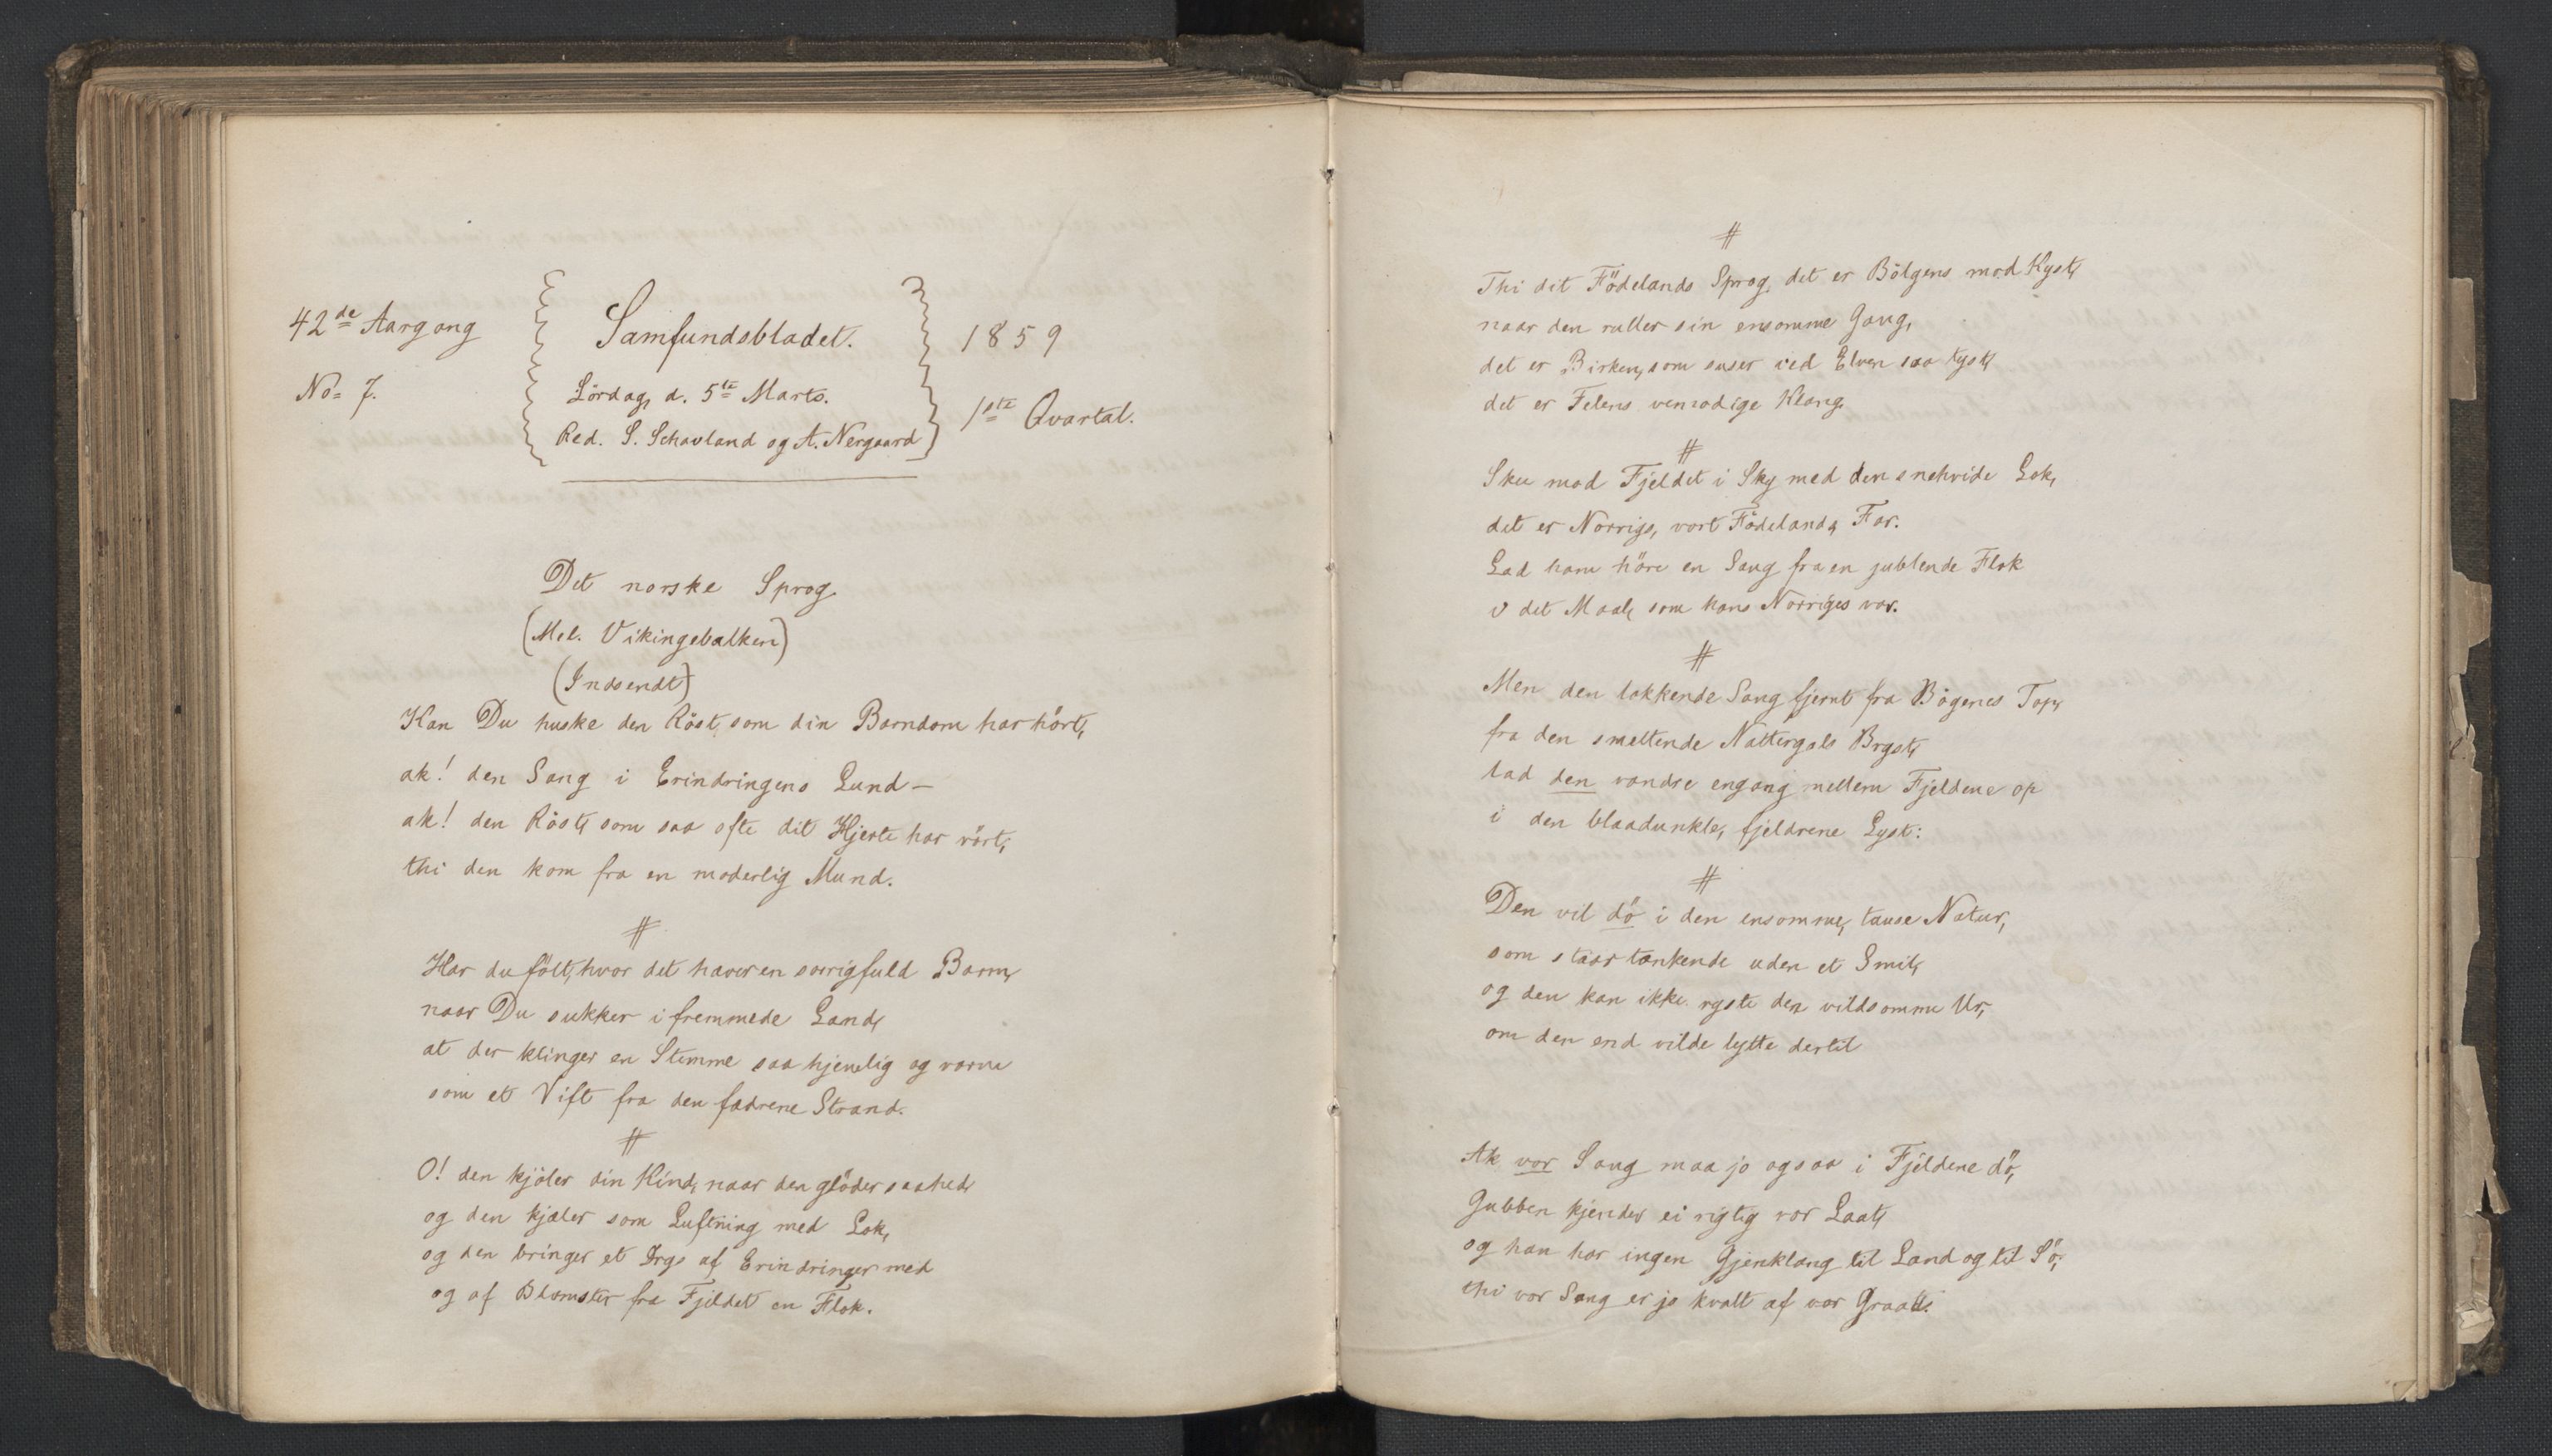 42de Aargang
No= 7.
Samfundsbladet.
Lördag, d. 5te Marts.
Red. S. Schavland og A. Nergaard
1859
1ste Qvartal.
Det norske Sprog.
(Mel. Vikingebalken)
(Indsendt)
Kan Du huske den Röst, som din Barndom har hört,
ak! den Sang i Erindringens Lund —
ak! den Röst, som saa ofte dit Hjerte har rört,
thi den kom fra en moderlig Mund.
#
Har du fölt, hvor det hæver en sorrigfuld Barm,
naar Du sukker i fremmede Land,
at der klinger en Stemme saa hjemlig og varm
som et Vift fra den fædrene Strand.
#
O! den kjöler din Kind, naar den glöder saa hed,
og den kjæler som Luftning med Lok,
og den bringer et Drys af Erindringer med
og af Blomster fra Fjeldet en Flok.
#
Thi dit Födelands Sprog, det er Bölgens mod Kyst,
naar den ruller sin ensomme Gang,
det er Birken, som suser ved Elven saa tyst,
det er Felens vemodige Klang.
#
Sku mod Fjeldet i Sky med den snehvide Lok,
det er Norrigs, vort Födelands, Far.
Lad ham höre en Sang fra en jublende Flok
i det Maal, som hans Norriges var.
#
Men den lokkende Sang fjernt fra Bögenes Top,
fra den smeltende Nattergals Bryst,
lad den vandre engang mellem Fjeldene op
i den blaadunkle, fjeldrene Lyst:
#
Den vil dö i den ensomme, tause Natur,
som staar tænkende uden et Smil,
og den kan ikke ryste den vildsomme Ur,
om den end vilde lytte dertil
Ak vor Sang maa jo ogsaa i Fjeldene dö,
Gubben kjender ei rigtig vor Laat,
og han har ingen Gjenklang til Land og til Sö,
thi vor Sang er jo kvalt af vor Graad.